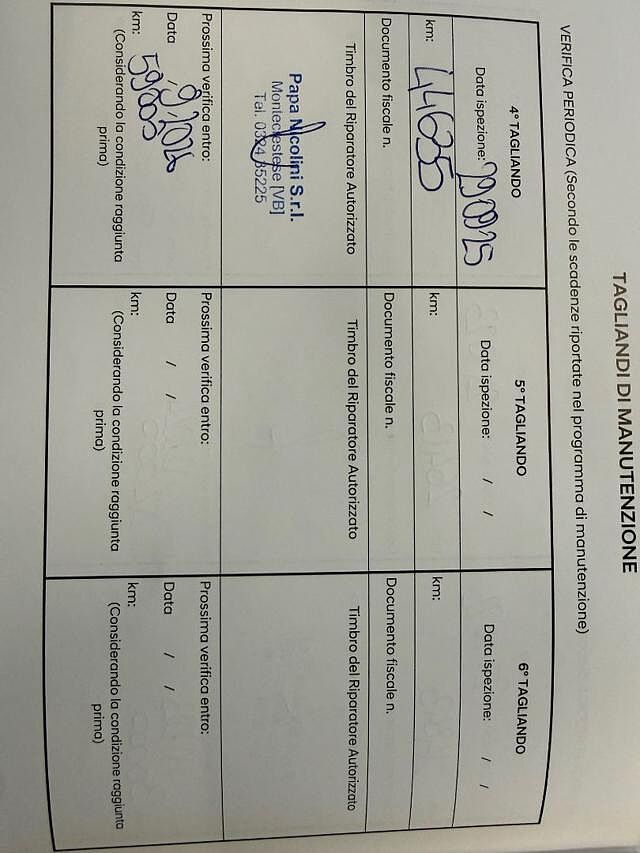 TAGLIANDI DI MANUTENZIONE
VERIFICA PERIODICA (Secondo le scadenze riportate nel programma di manutenzione)
4° TAGLIANDO
Data ispezione: 290925
km: 44635
Documento fiscale n.
Timbro del Riparatore Autorizzato
Papa Nicolini S.r.l.
Montecrestese [VB]
Tel. 0324 35225
Prossima verifica entro:
Data 9,2026
km: 59000
(Considerando la condizione raggiunta
prima)
5° TAGLIANDO
Data ispezione: / /
km:
Documento fiscale n.
Timbro del Riparatore Autorizzato
Prossima verifica entro:
Data / /
km:
(Considerando la condizione raggiunta
prima)
6° TAGLIANDO
Data ispezione: / /
km:
Documento fiscale n.
Timbro del Riparatore Autorizzato
Prossima verifica entro:
Data / /
km:
(Considerando la condizione raggiunta
prima)